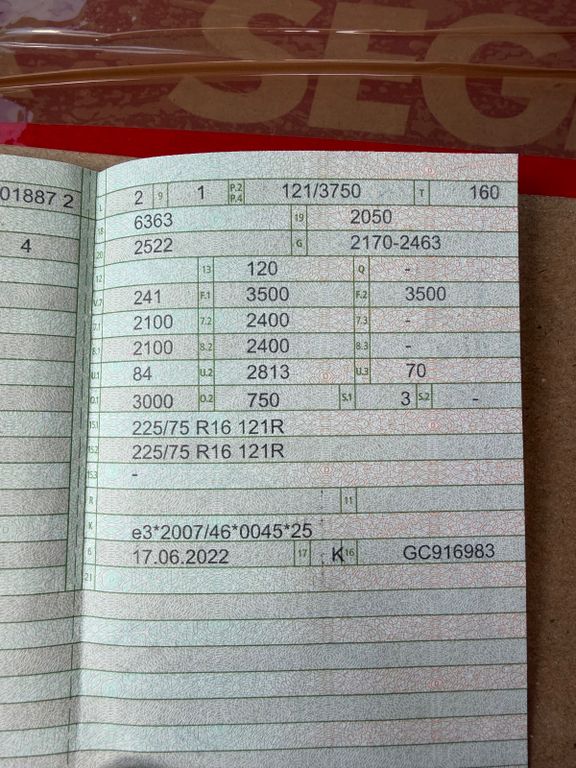 SEG
01887 2
4
L 2 9 1 P.2 P.4 121/3750 T 160
18 6363 19 2050
20 2522 G 2170-2463
12 13 120 Q -
V.7 241 F.1 3500 F.2 3500
7.1 2100 7.2 2400 7.3 -
8.1 2100 8.2 2400 8.3 -
U.1 84 U.2 2813 U.3 70
O.1 3000 O.2 750 S.1 3 S.2 -
15.1 225/75 R16 121R
15.2 225/75 R16 121R
15.3 -
R 11
K e3*2007/46*0045*25
6 17.06.2022 17 K 16 GC916983
21